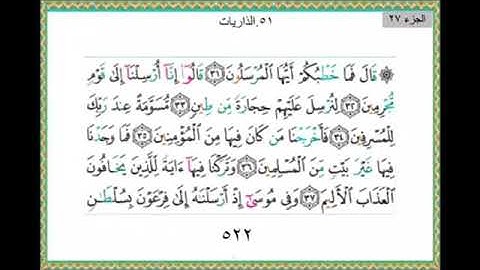 الجزء ٢٧
٥١. الذاريات
۞ قَالَ فَمَا خَطْبُكُمْ أَيُّهَا الْمُرْسَلُونَ ٣١ قَالُوا إِنَّا أُرْسِلْنَا إِلَىٰ قَوْمٍ
مُّجْرِمِينَ ٣٢ لِنُرْسِلَ عَلَيْهِمْ حِجَارَةً مِّن طِينٍ ٣٣ مُّسَوَّمَةً عِندَ رَبِّكَ
لِلْمُسْرِفِينَ ٣٤ فَأَخْرَجْنَا مَن كَانَ فِيهَا مِنَ الْمُؤْمِنِينَ ٣٥ فَمَا وَجَدْنَا
فِيهَا غَيْرَ بَيْتٍ مِّنَ الْمُسْلِمِينَ ٣٦ وَتَرَكْنَا فِيهَا ءَايَةً لِّلَّذِينَ يَخَافُونَ
الْعَذَابَ الْأَلِيمَ ٣٧ وَفِي مُوسَىٰ إِذْ أَرْسَلْنَاهُ إِلَىٰ فِرْعَوْنَ بِسُلْطَانٍ
٥٢٢